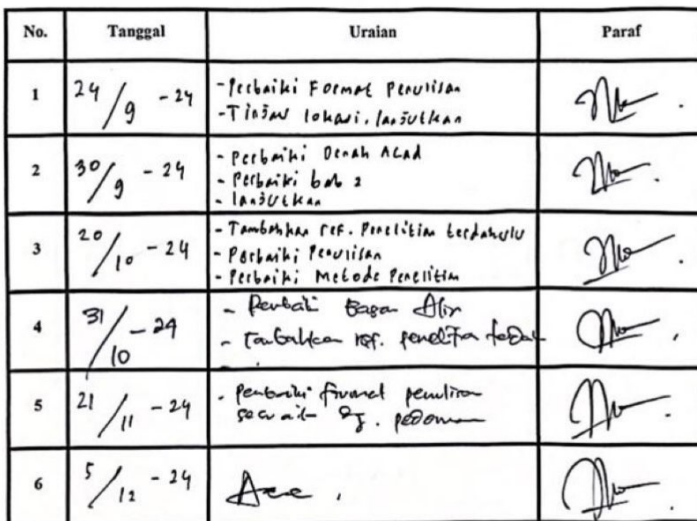 No. Tanggal Uraian Paraf
1 24/9 - 24 - Perbaiki Format Penulisan
- Tinjau lokasi, lanjutkan
2 30/9 - 24 - Perbaiki Denah ACad
- Perbaiki bab 2
- lanjutkan
3 20/10 - 24 - Tambahkan ref. Penelitian terdahulu
- Perbaiki Penulisan
- Perbaiki Metode Penelitian
4 31/10 - 24 - Perbaiki Bagan Alir
- tambahkan ref. penelitian
5 21/11 - 24 - perbaiki format penulisan
sesuai dg. pedoman
6 5/12 - 24 Acc.